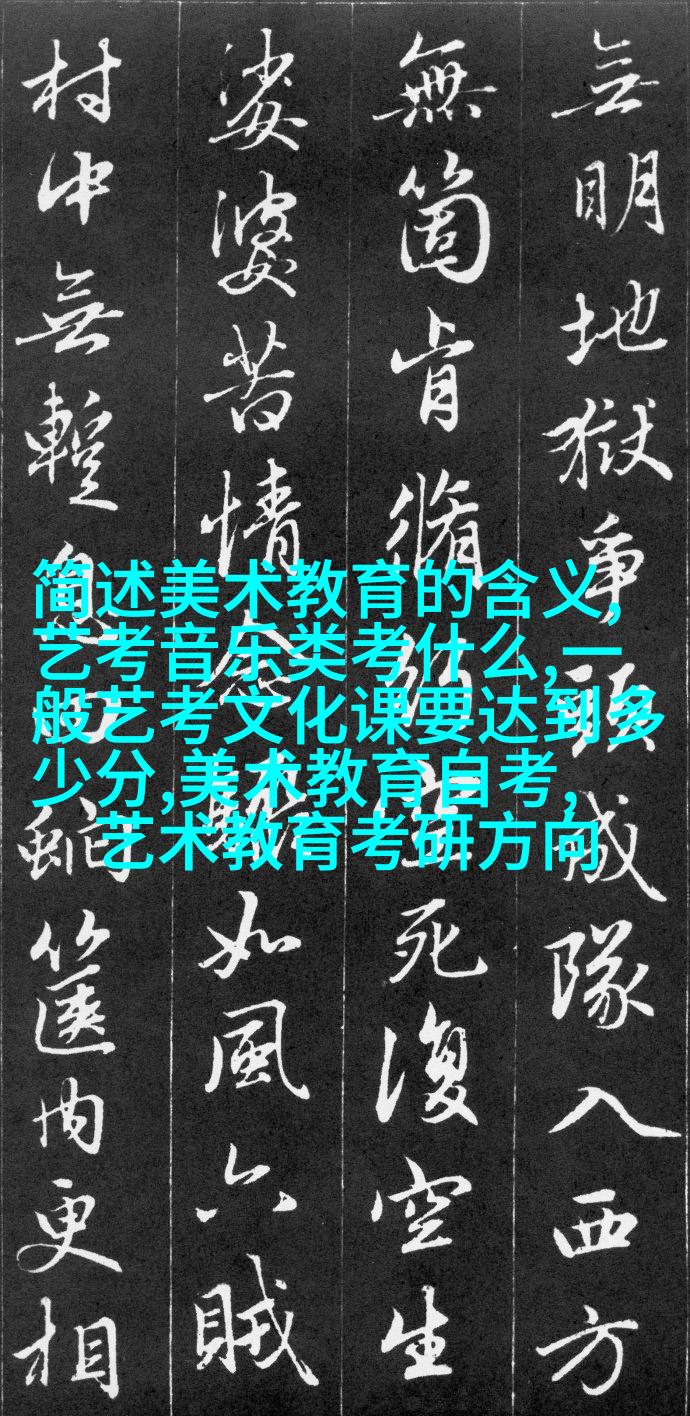 無明地獄爭頭成隊入西方
無箇肯脩死復空生
娑婆苦情念如風六賊
村中無蹔息虵篋内更相
简述美术教育的含义,
艺考音乐类考什么,一
般艺考文化课要达到多
少分,美术教育自考,
艺术教育考研方向